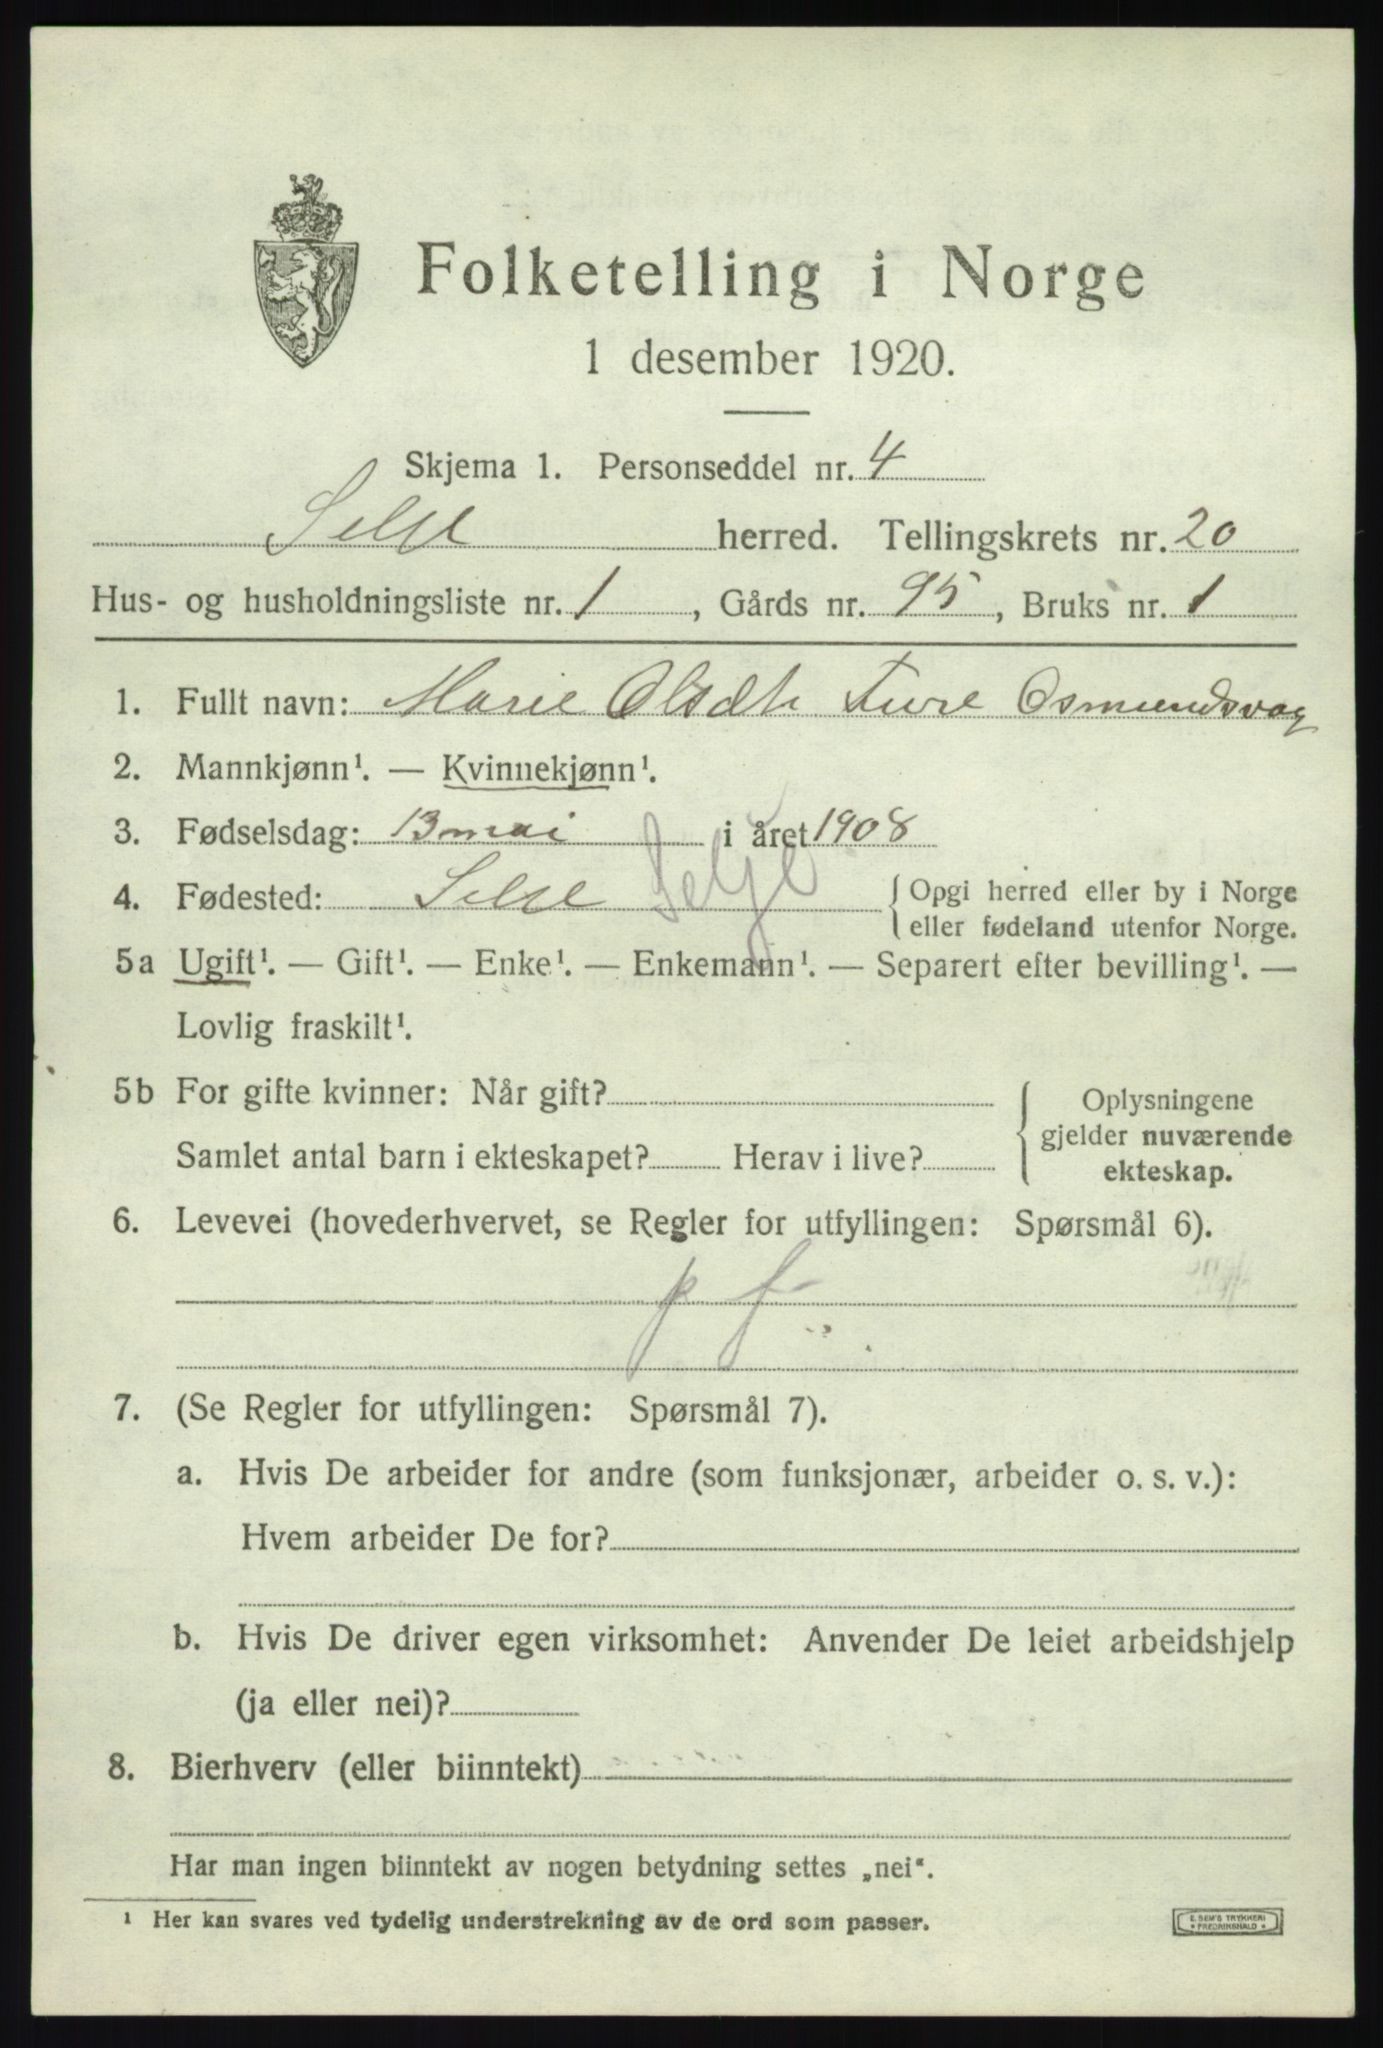 Folketelling i Norge
1 desember 1920.
Skjema 1. Personseddel nr. 4
Selje herred. Tellingskrets nr. 20
Hus- og husholdningsliste nr. 1, Gårds nr. 95, Bruks nr. 1
1. Fullt navn: Marie Olsdtr Fure Osmundsvag
2. Mannkjønn¹. — Kvinnekjønn¹.
3. Fødselsdag: 13 mai i året 1908
4. Fødested: Selje Selje { Opgi herred eller by i Norge
eller fødeland utenfor Norge.
5a Ugift¹. — Gift¹. — Enke¹. — Enkemann¹. — Separert efter bevilling¹. —
Lovlig fraskilt¹.
5b For gifte kvinner: Når gift?
Samlet antal barn i ekteskapet? Herav i live?
Oplysningene
gjelder nuværende
ekteskap.
6. Levevei (hovederhvervet, se Regler for utfyllingen: Spørsmål 6).
p f
7. (Se Regler for utfyllingen: Spørsmål 7).
a. Hvis De arbeider for andre (som funksjonær, arbeider o. s. v.):
Hvem arbeider De for?
b. Hvis De driver egen virksomhet: Anvender De leiet arbeidshjelp
(ja eller nei)?
8. Bierhverv (eller biinntekt)
Har man ingen biinntekt av nogen betydning settes „nei“.
¹ Her kan svares ved tydelig understrekning av de ord som passer.
E. SEM'S TRYKKERI
• FREDRIKSHALD •